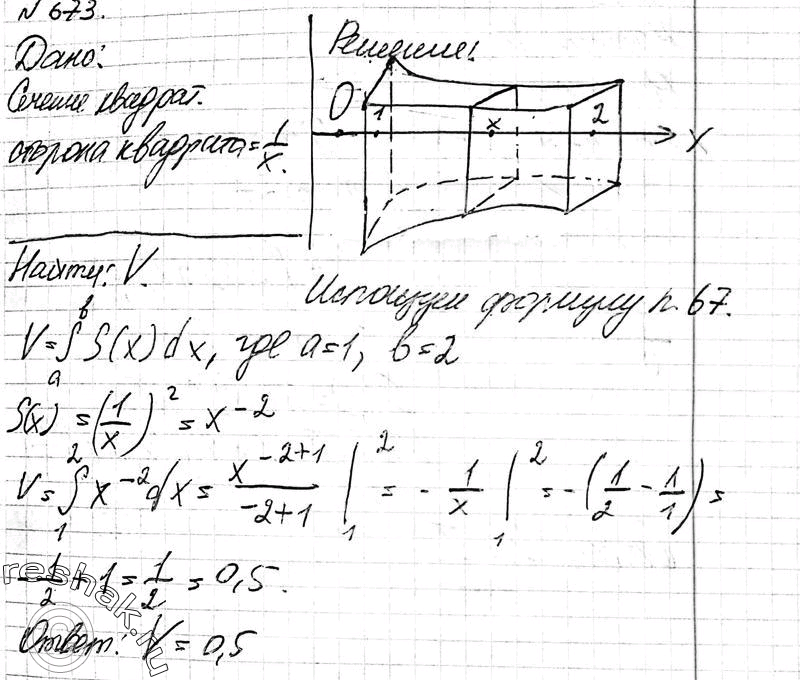 № 673.
Дано:
Сечение квадрат.
сторона квадрата = 1/x.
Решение:
O 1 x 2 X
Найти: V.
Используем формулу п. 67.
V = ∫ₐᵇ S(x) dx, где a=1, b=2
S(x) = (1/x)² = x⁻²
V = ∫₁² x⁻² dx = x⁻²⁺¹/(-2+1) |₁² = - 1/x |₁² = -(1/2 - 1/1) =
-1/2 + 1 = 1/2 = 0,5.
Ответ: V = 0,5
reshak.ru